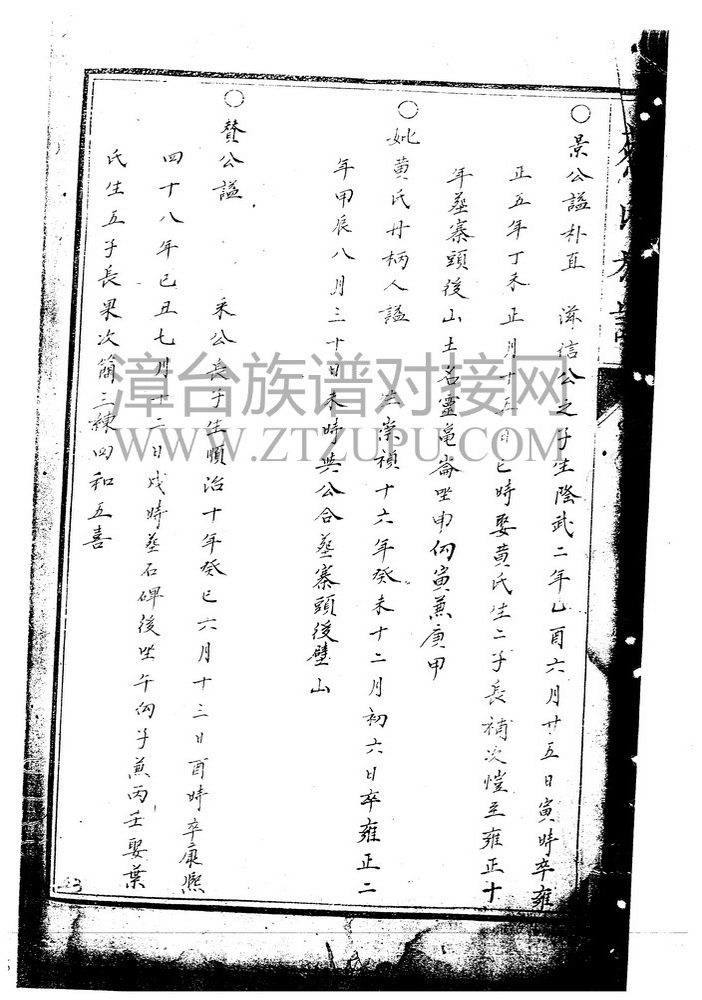 ○景公謚朴直 滐信公之子生隆武二年乙酉六月廿五日寅時卒雍
正五年丁未正月十五日巳時娶黄氏生二子長補次愷至雍正十
年葬寨頭後山土名靈亀崙坐申向寅兼庚甲
○妣黄氏丹柄人謚 生崇禎十六年癸未十二月初六日卒雍正二
年甲辰八月三十日未時與公合葬寨頭後壁山
○賛公謚 采公長子生順治十年癸巳六月十三日酉時卒康熙
四十八年己丑七月十二日戌時葬石碑後坐午向子兼丙壬娶葉
氏生五子長果次簡三練四和五喜
漳台族谱对接网
WWW.ZTZUPU.COM